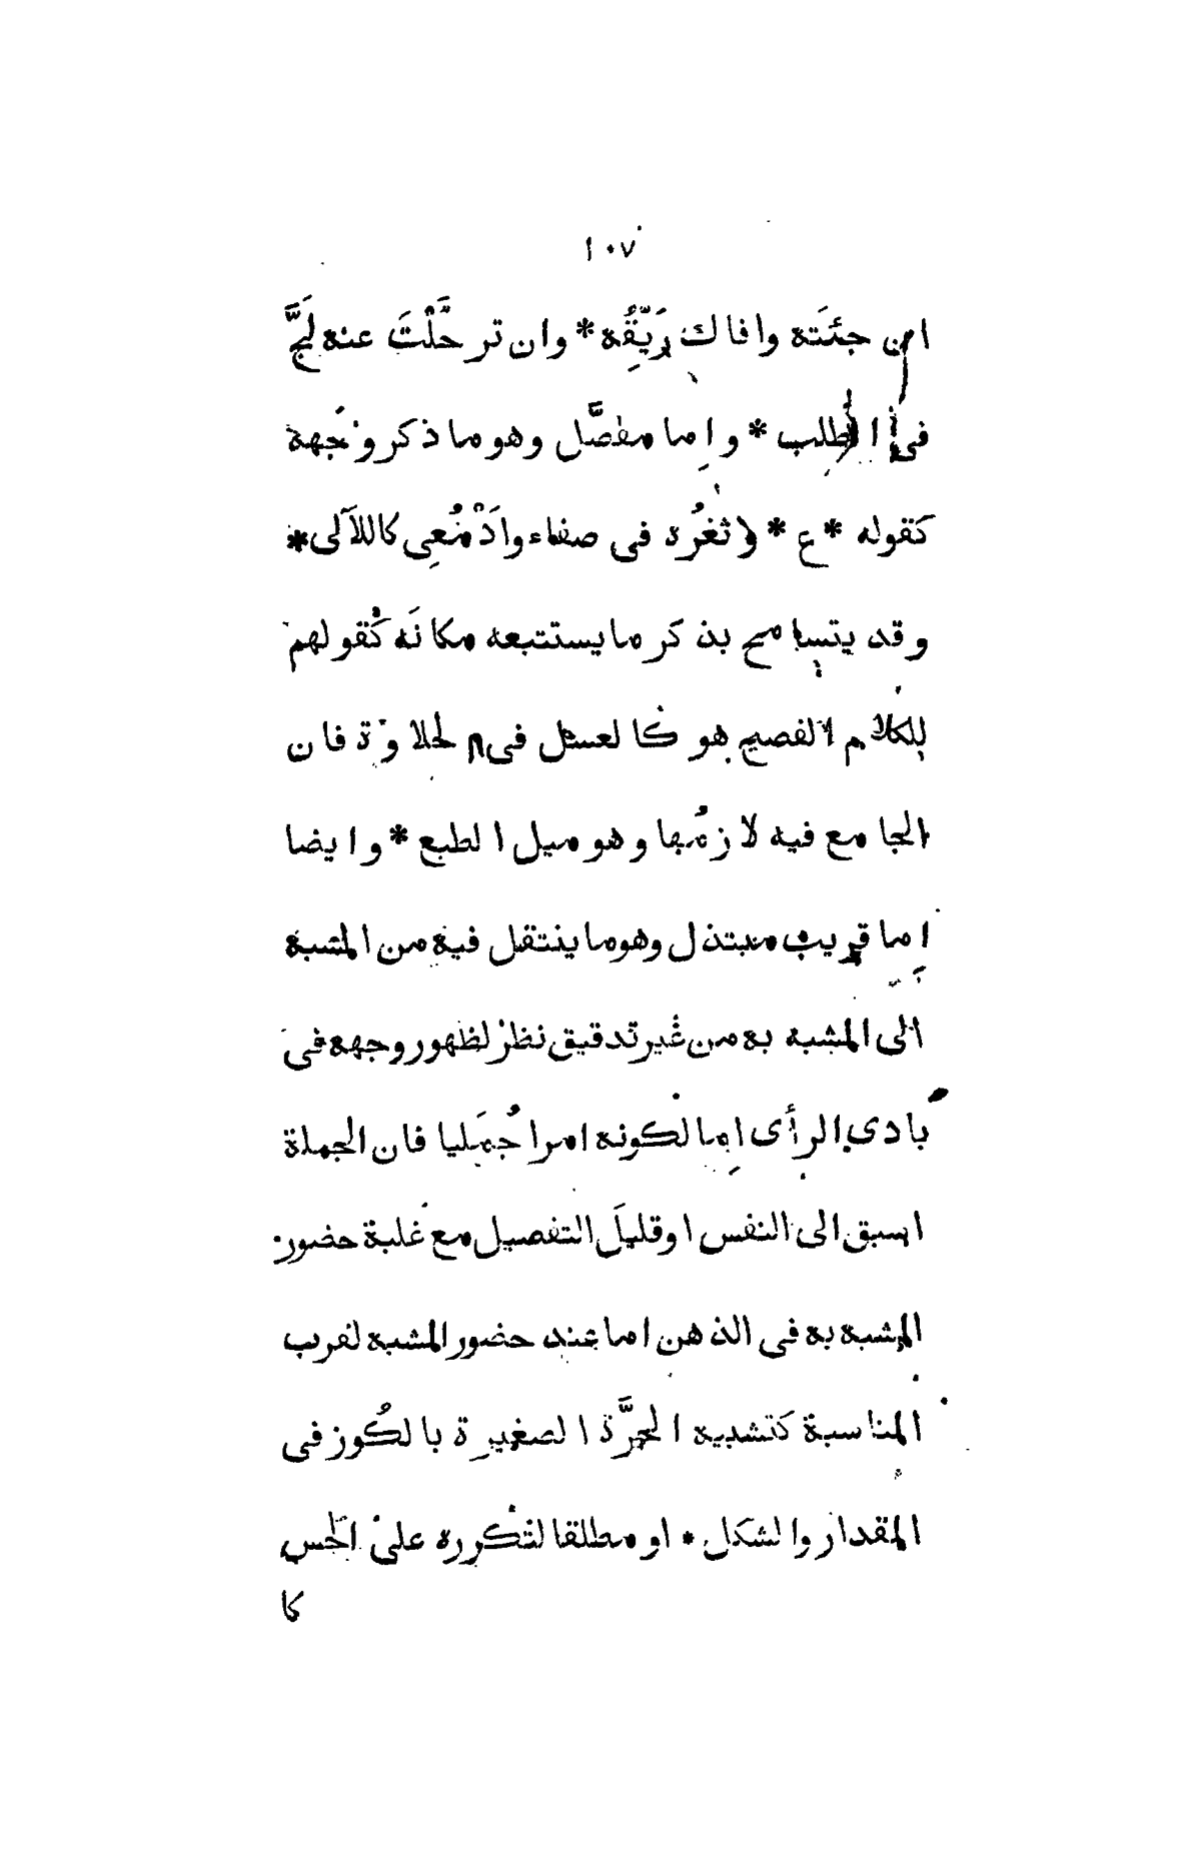 ١٠٧
ان جئتَه وافاك رَيّقُه * وان ترحَّلْتَ عنه لَجَّ
فى الطلب * وإما مفصَّل وهو ما ذكر وجهه
كقوله * ع * وثغرُه فى صفاء وادْمُعِى كاللآلى *
وقد يتسامح بذكر ما يستتبعه مكانَه كقولهم
للكلام الفصيح هو كالعسل فى الحلاوة فان
الجامع فيه لازمُها وهو ميل الطبع * وايضا
إما قريب مبتذل وهو ما ينتقل فيه من المشبه
الى المشبه به من غير تدقيق نظر لظهور وجهه فى
بادى الرأى إما لكونه امرا جُمَليا فان الجملة
اسبق الى النفس او قليلَ التفصيل مع غلبة حضور
المشبه به فى الذهن اما عند حضور المشبه لقرب
المناسبة كتشبيه الجرَّة الصغيرة بالكُوز فى
المقدار والشكل * او مطلقا لتكرره على الحس
كا